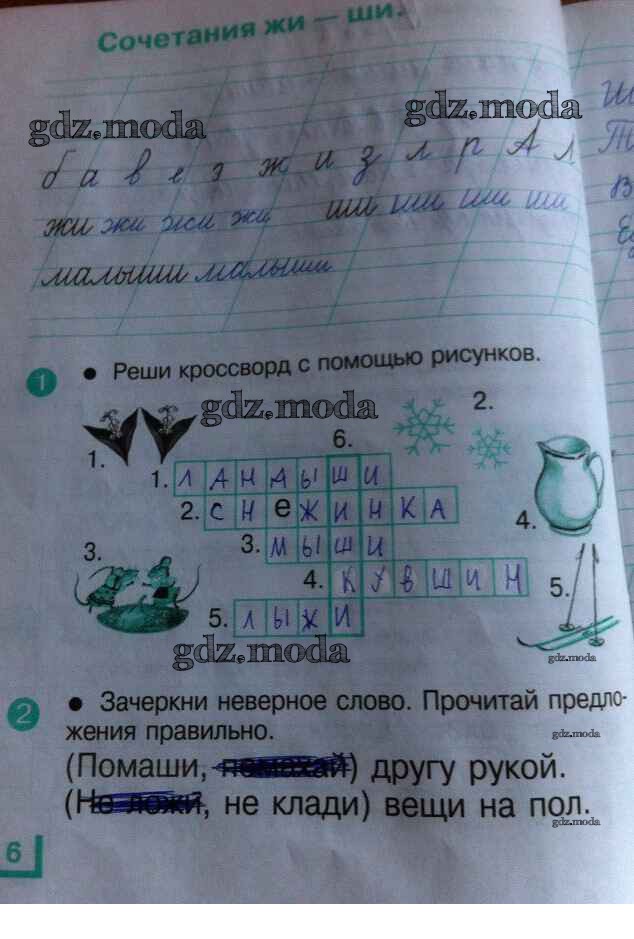 Сочетания жи — ши.
gdz.moda gdz.moda
б а в е з ж и з л р А л
жи жи жи жи ши ши ши ши ши
малыши малыши
1 • Реши кроссворд с помощью рисунков.
gdz.moda
2.
6.
1.
1. ЛАНДЫШИ
2. СНеЖИНКА
4.
3.
3. МЫШИ
4. КУВШИН
5.
5. ЛЫЖИ
gdz.moda
gdz.moda
2 • Зачеркни неверное слово. Прочитай предло-
жения правильно.
gdz.moda
(Помаши, помахай) другу рукой.
(Не ложи, не клади) вещи на пол.
gdz.moda
6